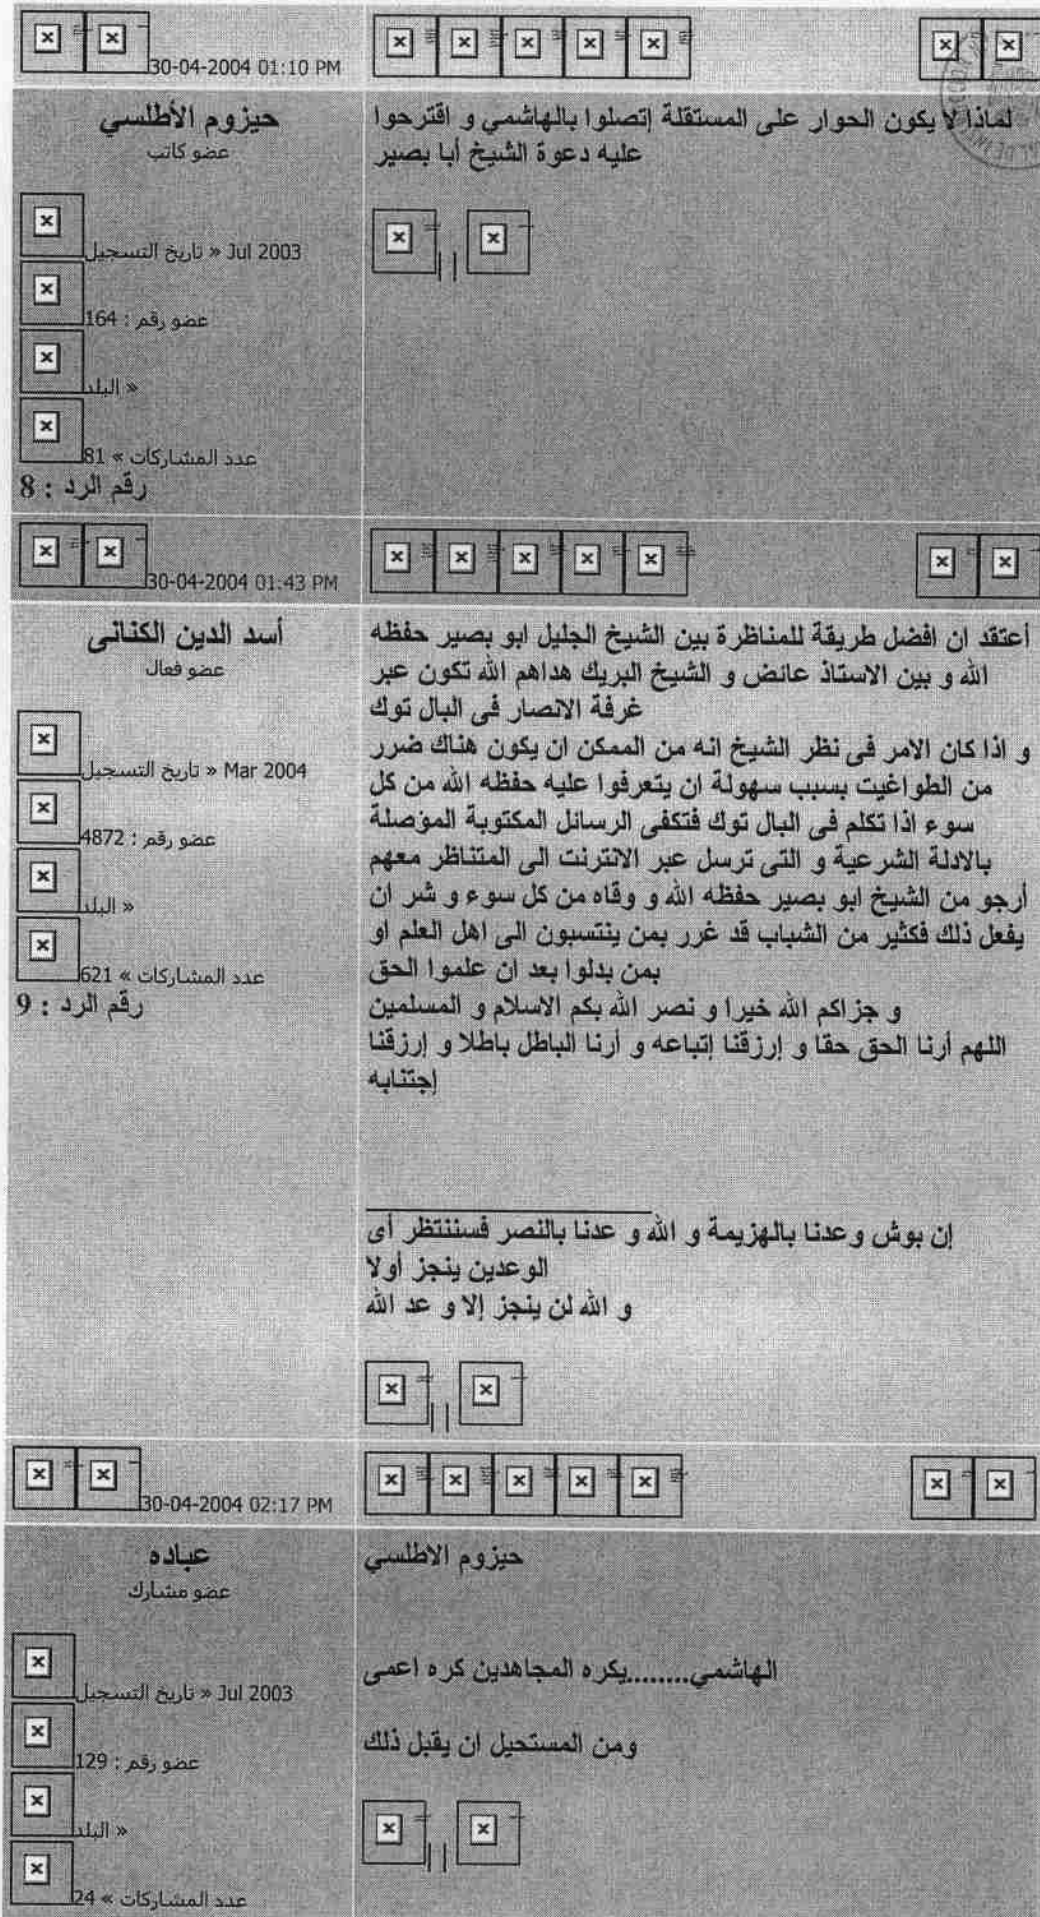 30-04-2004 01:10 PM
حيزوم الأطلسي
عضو كاتب
تاريخ التسجيل » Jul 2003
عضو رقم : 164
البلد »
عدد المشاركات » 81
رقم الرد : 8
لماذا لا يكون الحوار على المستقلة إتصلوا بالهاشمي و اقترحوا
عليه دعوة الشيخ أبا بصير
30-04-2004 01:43 PM
أسد الدين الكنانى
عضو فعال
تاريخ التسجيل » Mar 2004
عضو رقم : 4872
البلد »
عدد المشاركات » 621
رقم الرد : 9
أعتقد ان افضل طريقة للمناظرة بين الشيخ الجليل ابو بصير حفظه
الله و بين الاستاذ عائض و الشيخ البريك هداهم الله تكون عبر
غرفة الانصار فى البال توك
و اذا كان الامر فى نظر الشيخ انه من الممكن ان يكون هناك ضرر
من الطواغيت بسبب سهولة ان يتعرفوا عليه حفظه الله من كل
سوء اذا تكلم فى البال توك فتكفى الرسائل المكتوبة المؤصلة
بالادلة الشرعية و التى ترسل عبر الانترنت الى المتناظر معهم
أرجو من الشيخ ابو بصير حفظه الله و وقاه من كل سوء و شر ان
يفعل ذلك فكثير من الشباب قد غرر بمن ينتسبون الى اهل العلم او
بمن بدلوا بعد ان علموا الحق
و جزاكم الله خيرا و نصر الله بكم الاسلام و المسلمين
اللهم أرنا الحق حقا و إرزقنا إتباعه و أرنا الباطل باطلا و إرزقنا
إجتنابه
إن بوش وعدنا بالهزيمة و الله و عدنا بالنصر فسننتظر أى
الوعدين ينجز أولا
و الله لن ينجز إلا و عد الله
30-04-2004 02:17 PM
عباده
عضو مشارك
تاريخ التسجيل » Jul 2003
عضو رقم : 129
البلد »
عدد المشاركات » 24
حيزوم الاطلسي
الهاشمي........يكره المجاهدين كره اعمى
ومن المستحيل ان يقبل ذلك